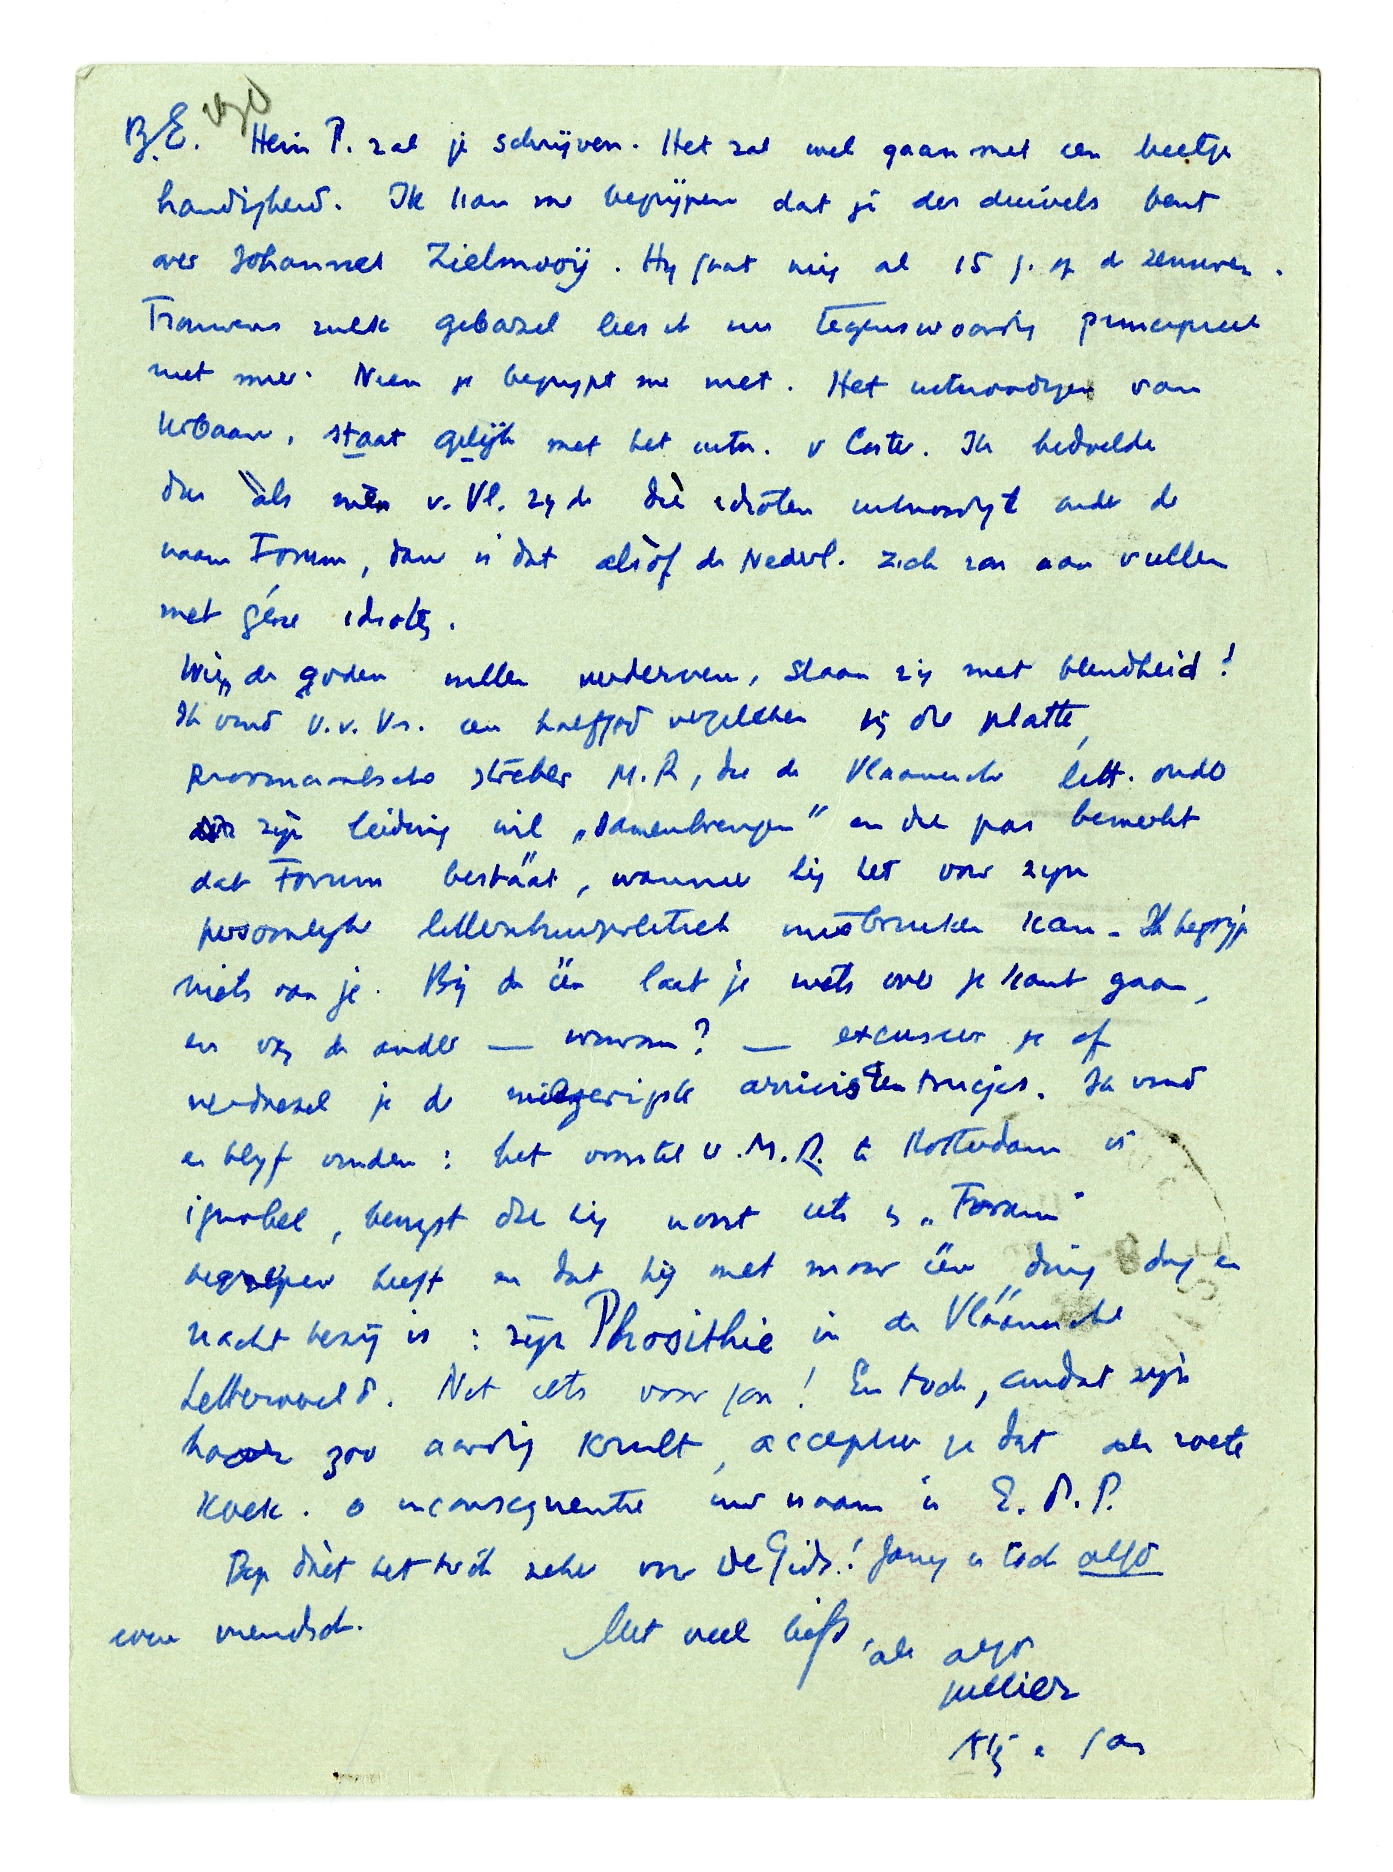 B.E. Hein P. zal je schrijven. Het zal wel gaan met een beetje
handigheid. Ik kan me begrijpen dat je des duivels bent
over Johannes Zielmooij. Hij gaat mij al 15 j. op de zenuwen.
Trouwens zulk gebazel lees ik nu tegenswoordig principieel
niet meer. Neen je begrijpt me niet. Het uitnoodigen van
Urbaan, staat gelijk met het uitn. v Coster. Ik bedoelde
dus als men v. Vl. zijde die idioten uitnoodigt onder de
naam Forum, dan is dat alsòf de Nederl. zich zou aanvullen
met géne idioten.
Wien de goden willen verderven, slaan zij met blindheid!
Ik vind v.v.Vr. een halfgod vergeleken bij die platte,
provinciaalsche streber M.R, die de Vlaamsche lett. onder
zijn leiding wil „samenbrengen" en die pas bemerkt
dat Forum bestäat, wanneer hij het voor zijn
persoonlijke letterkunspolitiek misbruiken kan. Ik begrijp
niets van je. Bij de één laat je niets over je kant gaan,
en bij de ander — waarom? — excuseer je of
verdoezel je de arrivistentrucjes. Ik vind
en blijf vinden: het voorstel v. M.R. te Rotterdam is
ignobel, bewijst dat hij nooit iets v. „Forum"
begrepen heeft en dat hij met maar één ding dag en
nacht bezig is: zijn Phosithie in de Vläämsche
Letterwereld. Net iets voor jou! En toch, omdat zijn
haar zoo aardig krult, accepteer je dat als zoete
koek. o inconsequentie uw naam is E. d. P.
Bep dièt het tòch zeker voor De Gids! Jany is toch altijd
even vriendsch. Met veel liefs, als altijd
jullier
Atj e Jan